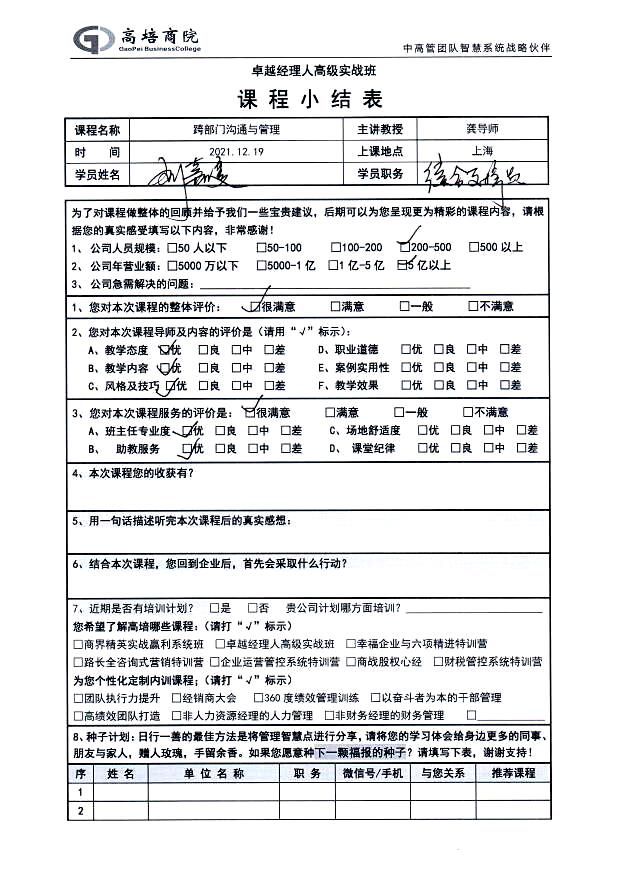 高培商院
GaoPei BusinessCollege
中高管团队智慧系统战略伙伴
卓越经理人高级实战班
课程小结表
课程名称 跨部门沟通与管理 主讲教授 龚导师
时 间 2021.12.19 上课地点 上海
学员姓名 学员职务
为了对课程做整体的回顾并给予我们一些宝贵建议，后期可以为您呈现更为精彩的课程内容，请根
据您的真实感受填写以下内容，非常感谢！
1、 公司人员规模：□50 人以下 □50-100 □100-200 ☑200-500 □500 以上
2、 公司年营业额：□5000 万以下 □5000-1 亿 □1 亿-5 亿 ☑5 亿以上
3、 公司急需解决的问题：
1、您对本次课程的整体评价： ☑很满意 □满意 □一般 □不满意
2、您对本次课程导师及内容的评价是（请用“√”标示）：
A、教学态度 ☑优 □良 □中 □差 D、职业道德 □优 □良 □中 □差
B、教学内容 ☑优 □良 □中 □差 E、案例实用性 □优 □良 □中 □差
C、风格及技巧 ☑优 □良 □中 □差 F、教学效果 □优 □良 □中 □差
3、您对本次课程服务的评价是： ☑很满意 □满意 □一般 □不满意
A、班主任专业度 ☑优 □良 □中 □差 C、场地舒适度 □优 □良 □中 □差
B、 助教服务 ☑优 □良 □中 □差 D、 课堂纪律 □优 □良 □中 □差
4、本次课程您的收获有？
5、用一句话描述听完本次课程后的真实感想：
6、结合本次课程，您回到企业后，首先会采取什么行动？
7、近期是否有培训计划？ □是 □否 贵公司计划哪方面培训？
您希望了解高培哪些课程：（请打“√”标示）
□商界精英实战赢利系统班 □卓越经理人高级实战班 □幸福企业与六项精进特训营
□路长全咨询式营销特训营 □企业运营管控系统特训营 □商战股权心经 □财税管控系统特训营
为您个性化定制内训课程；（请打“√”标示）
□团队执行力提升 □经销商大会 □360 度绩效管理训练 □以奋斗者为本的干部管理
□高绩效团队打造 □非人力资源经理的人力管理 □非财务经理的财务管理 □
8、种子计划：日行一善的最佳方法是将管理智慧点进行分享，请将您的学习体会给身边更多的同事、
朋友与家人，赠人玫瑰，手留余香。如果您愿意种下一颗福报的种子？请填写下表，谢谢支持！
序 姓 名 单 位 名 称 职 务 微信号/手机 与您关系 推荐课程
1
2